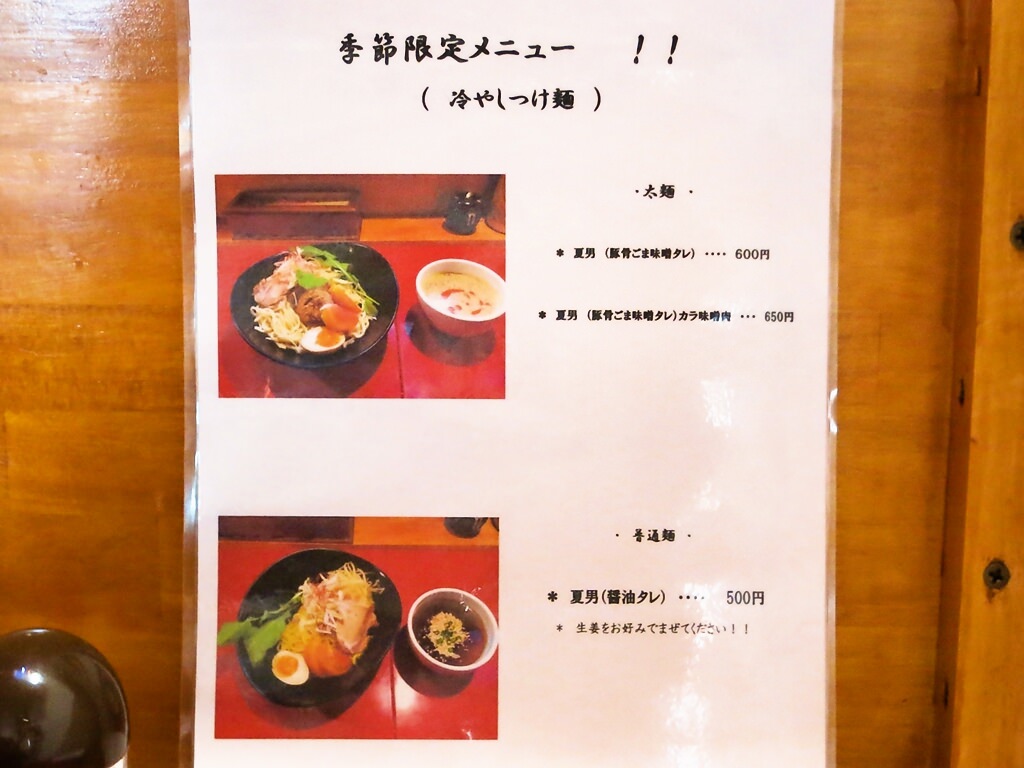 季節限定メニュー　！！
（　冷やしつけ麺　）
・太麺　・
＊　夏男　（豚骨ごま味噌タレ）　‥‥　600円
＊　夏男　（豚骨ごま味噌タレ）カラ味噌肉　‥･　650円
・　普通麺　・
＊　夏男（醤油タレ）　‥‥　500円
＊　生姜をお好みでまぜてください！！